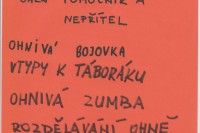 POMOCNÍK A
NEPŘÍTEL
OHNIVÁ BOJOVKA
VTYPY K TÁBORÁKU
OHNIVÁ ZUMBA
ROZDĚLÁVÁNÍ OHNĚ